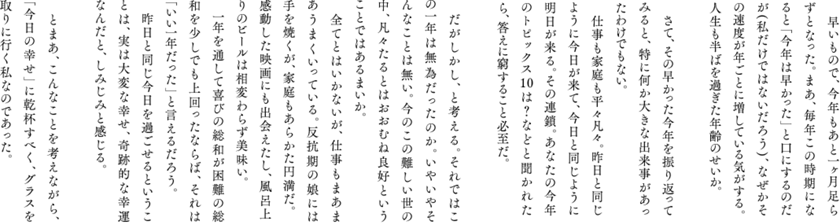 早いもので、今年もあと一ヶ月足ら
ずとなった。まあ、毎年この時期にな
ると「今年は早かった」と口にするのだ
が(私だけではないだろう)、なぜかそ
の速度が年ごとに増している気がする。
人生も半ばを過ぎた年齢のせいか。
さて、その早かった今年を振り返って
みると、特に何か大きな出来事があっ
たわけでもない。
仕事も家庭も平々凡々。昨日と同じ
ように今日が来て、今日と同じように
明日が来る。その連鎖。あなたの今年
のトピックス10は?などと聞かれた
ら、答えに窮すること必至だ。
だがしかし、と考える。それではこ
の一年は無為だったのか。いやいやそ
んなことは無い。今のこの難しい世の
中、凡々たるとはおおむね良好という
ことではあるまいか。
全てとはいかないが、仕事もまあま
あうまくいっている。反抗期の娘には
手を焼くが、家庭もあらかた円満だ。
感動した映画にも出会えたし、風呂上
りのビールは相変わらず美味い。
一年を通して喜びの総和が困難の総
和を少しでも上回ったならば、それは
「いい一年だった」と言えるだろう。
昨日と同じ今日を過ごせるというこ
とは、実は大変な幸せ、奇跡的な幸運
なんだと、しみじみと感じる。
とまあ、こんなことを考えながら、
「今日の幸せ」に乾杯すべく、グラスを
取りに行く私なのであった。